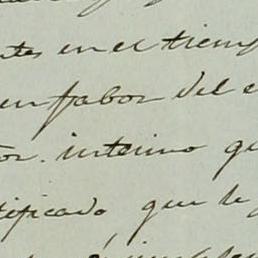 ntes en el tiemp
en fabor del e
or. interino qu
tificado, que le